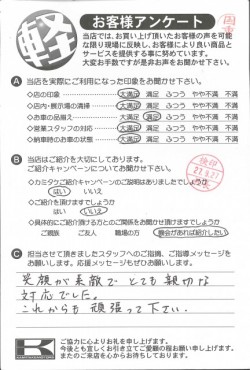 軽
お客様アンケート
当店では、お買い上げ頂いたお客様の声を可能
な限り現場に反映し、お客様により良い商品と
サービスを提供する事に努めています。
大変お手数ですが是非お声をお聞かせ下さい。
A 当店を実際にご利用になった印象をお聞かせ下さい。
◇店の印象 大満足 満足 ふつう やや不満 不満
◇店内・展示場の清掃 大満足 満足 ふつう やや不満 不満
◇お車の品揃え 大満足 満足 ふつう やや不満 不満
◇営業スタッフの対応 大満足 満足 ふつう やや不満 不満
◇納車時のお車の状態 大満足 満足 ふつう やや不満 不満
B 当店はご紹介を大切にしております。
ご紹介キャンペーンについてお聞かせ下さい。
◇カミタケご紹介キャンペーンのご説明はありましたでしょうか
はい いいえ
◇ご紹介を頂けますでしょうか
はい いいえ
◇具体的にご紹介頂ける方とのご関係をお聞かせ頂けますでしょうか
ご親族 ご友人 職場の方 機会があれば紹介したい
C 担当させて頂きましたスタッフへのご指摘、ご指導メッセージを
お願いします。応援メッセージもぜひお願いします。
笑顔が素敵で とても 親切な
対応でした。
これからも 頑張って下さい。
K
ご協力に心よりお礼を申し上げます。
今後とも宜しくお引き立てご愛顧の程お願い申し上げます。
またのご来店を心からお待ちしております。